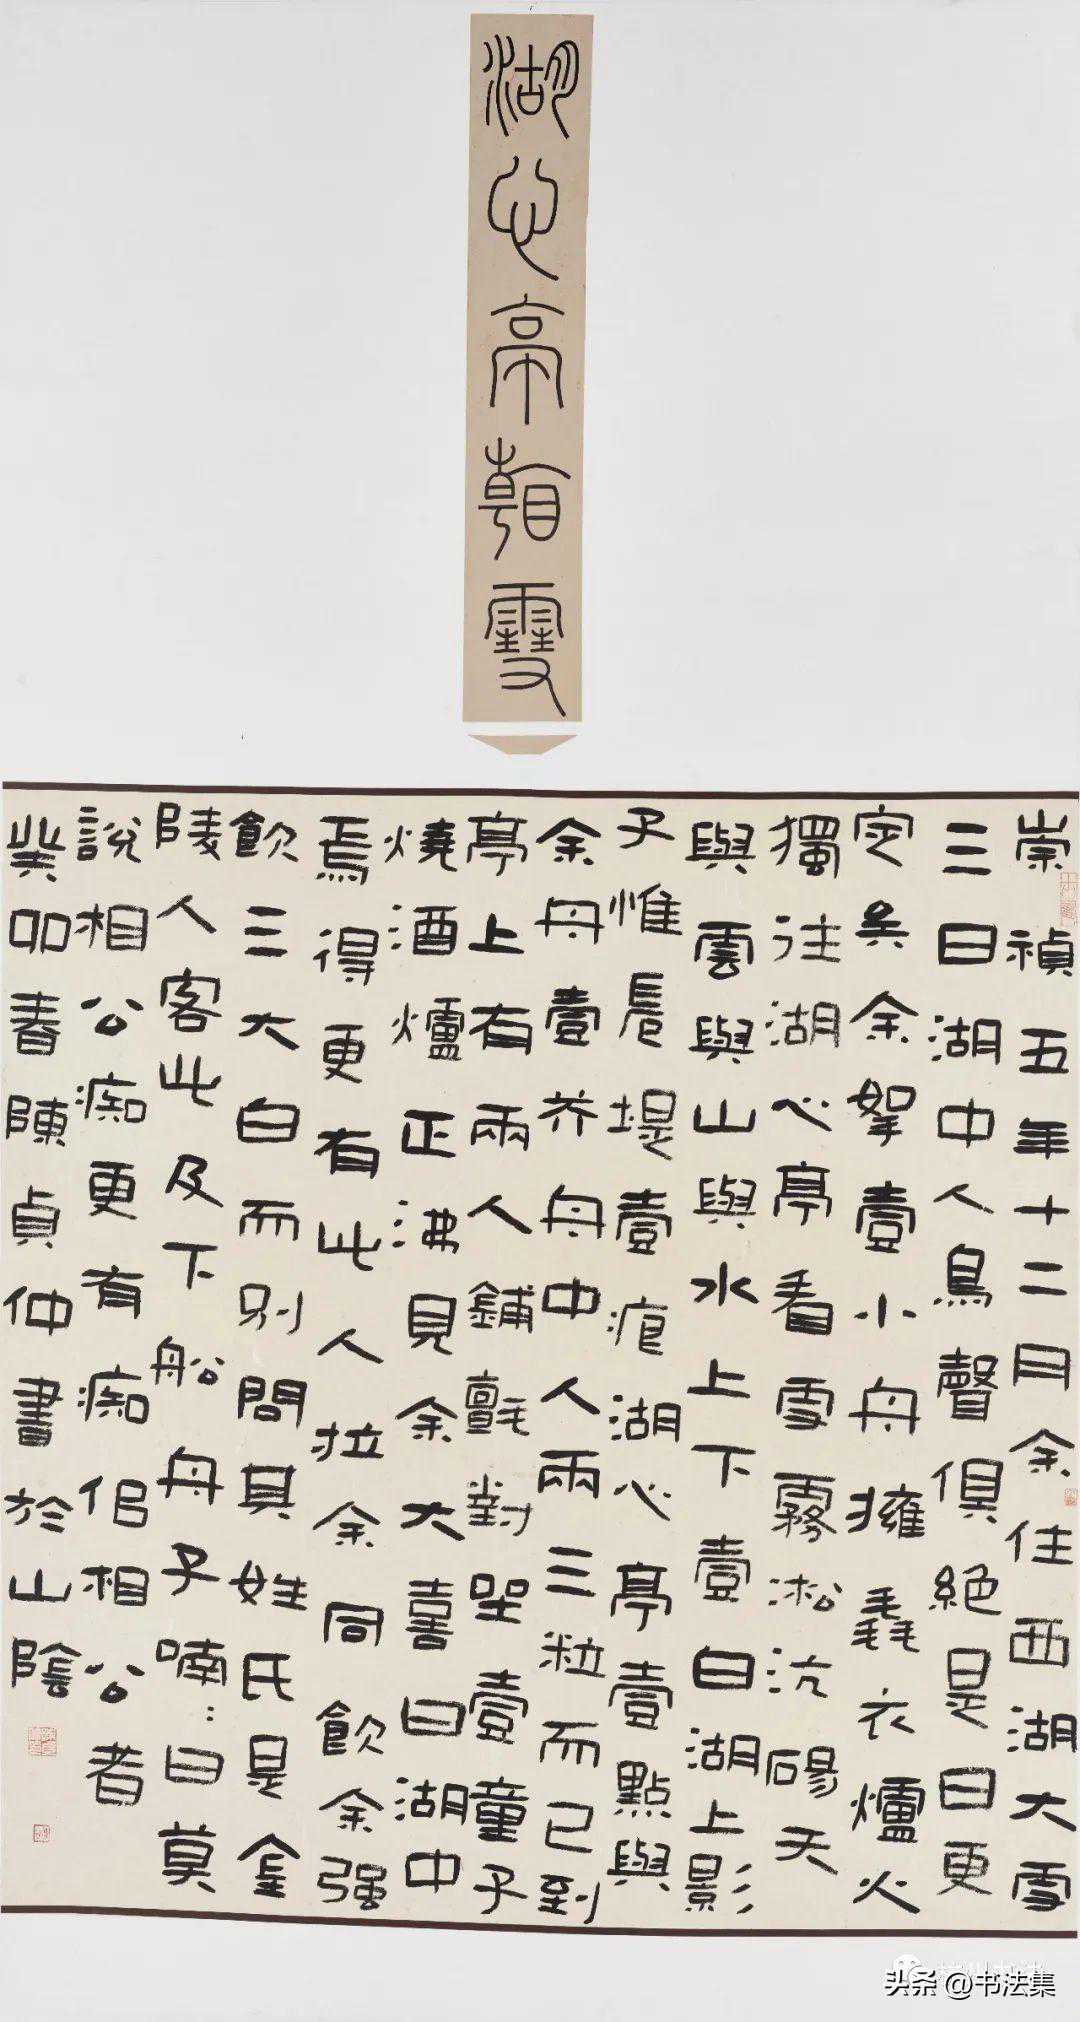 湖心亭看雪
崇禎五年十二月余住西湖大雪
三日湖中人鳥聲俱絕是日更
定矣余挐壹小舟擁毳衣爐火
獨往湖心亭看雪霧凇沆碭天
與雲與山與水上下壹白湖上影
子惟長堤壹痕湖心亭壹點與
余舟壹芥舟中人兩三粒而已到
亭上有兩人鋪氈對坐壹童子
燒酒爐正沸見余大喜曰湖中
焉得更有此人拉余同飲余强
飲三大白而別問其姓氏是金
陵人客此及下船舟子喃:曰莫
說相公痴更有痴佀相公者
癸卯春陳貞仲書於山陰
头条 @书法集